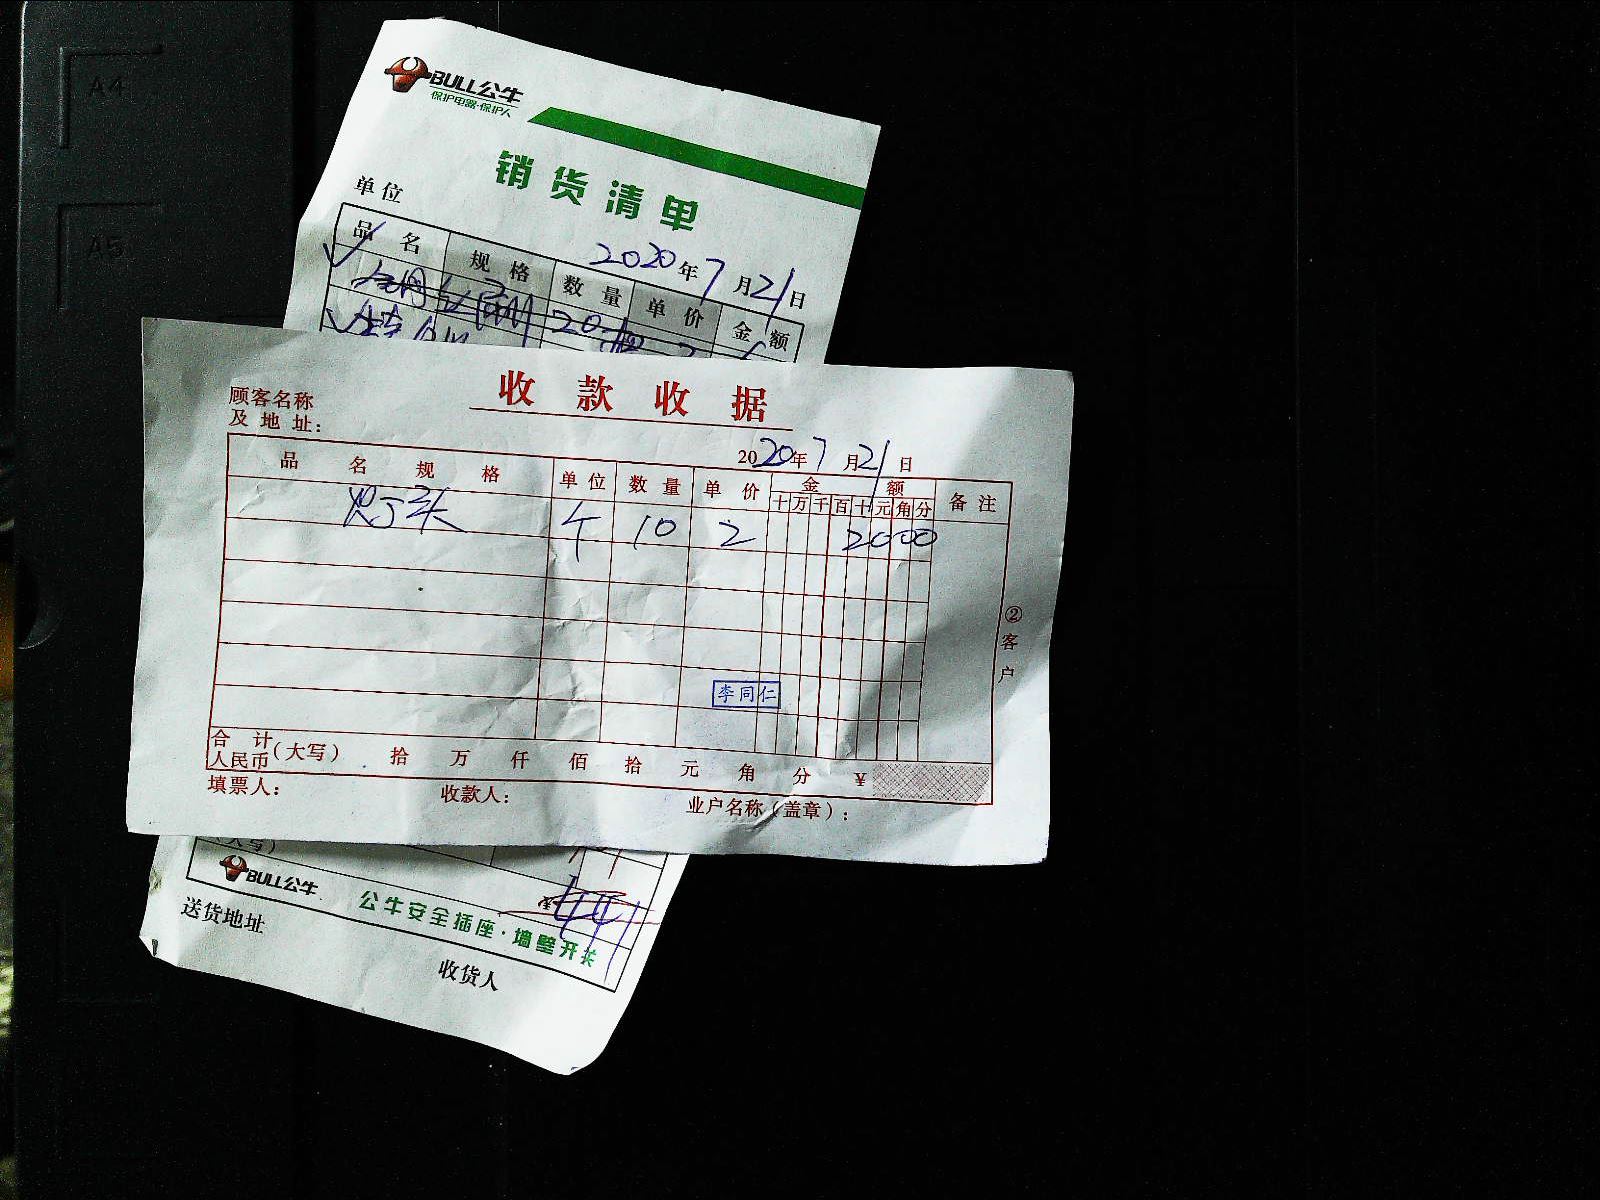 A4
A5
BULL公牛
保护电器·保护人
销货清单
单位
2020年7月21日
品名 规格 数量 单价 金额
20
收款收据
顾客名称
及地址：
2020年7月21日
品名规格 单位 数量 单价 金额 备注
十万千百十元角分
个 10 2 2000
②客户
李同仁
合计
人民币(大写) 拾 万 仟 佰 拾 元 角 分 ¥
填票人： 收款人： 业户名称（盖章）：
大写)
BULL公牛 公牛安全插座·墙壁开关
送货地址
收货人